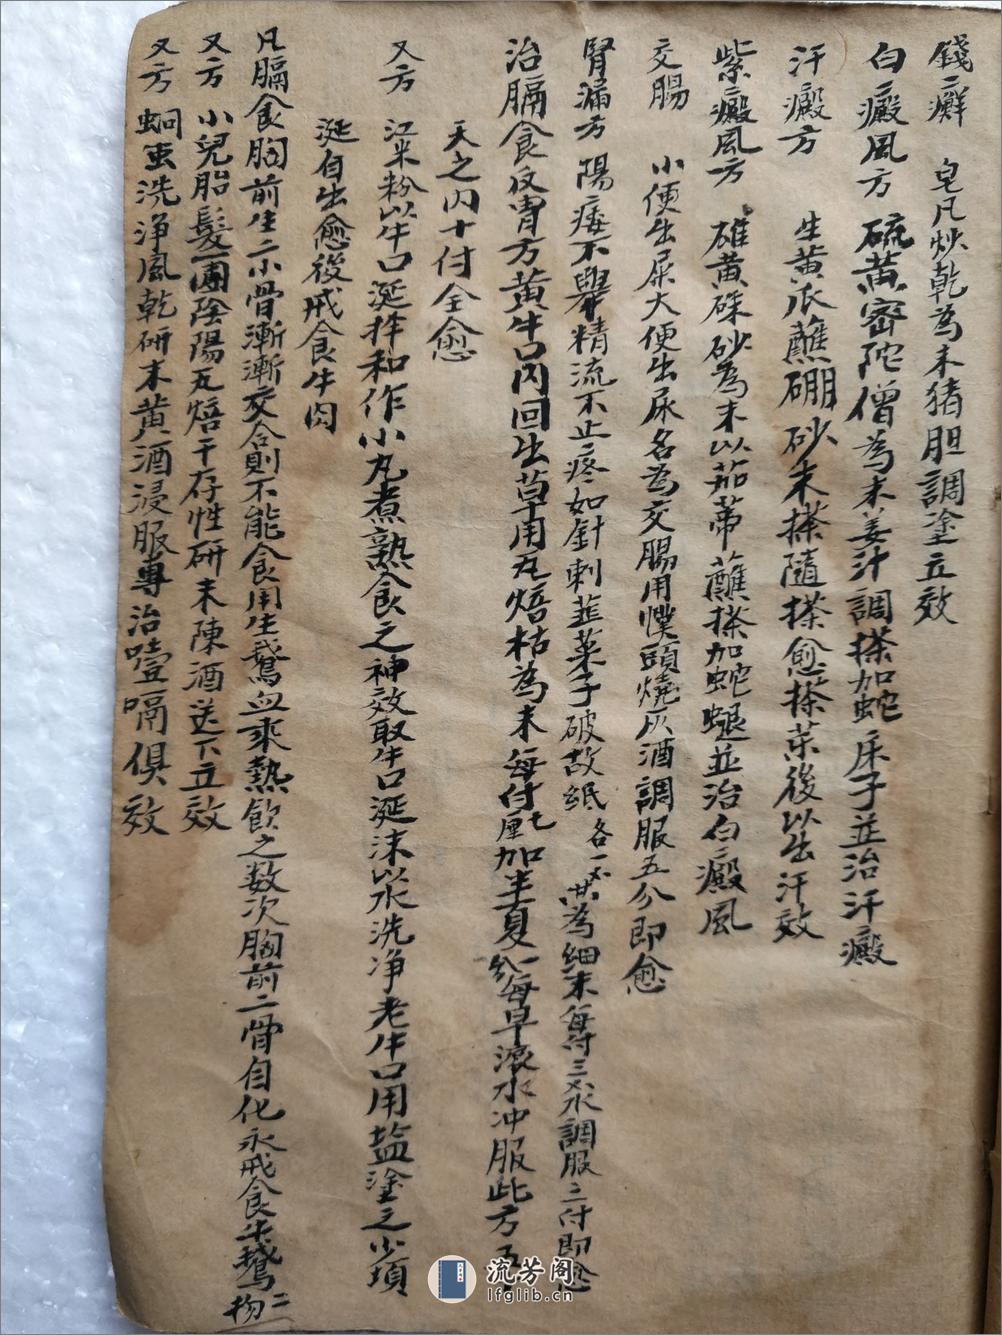 錢癬　皂凡炒乾為末猪胆調塗立效
白癜風方　硫黄密陀僧為末姜汁調搽加蛇床子並治汗癜
汗癜方　生黄瓜蘸硼砂末搽隨搽愈搽菜後以出汗效
紫癜風方　雄黄硃砂為末以茄蒂蘸搽加蛇腿並治白癜風
交腸　小便出屎大便出尿名為交腸用幞頭燒灰酒調服五分即愈
腎漏方　陽痿不舉精流不止疼如針刺韮菜子破故紙各一共為細末每付三水調服三付即愈
治膈食反胃方黄牛口内回出草用瓦焙枯為末每付七厘加半夏每早滾水冲服此方五
天之内十付全愈
又方　江米粉以牛口涎拌和作小丸煮熟食之神效取牛口涎沫以水洗净老牛口用盐塗之少頃
涎自出愈後戒食牛肉
凡膈食胸前生二小骨漸漸交合則不能食用生鵝血乘熱飲之数次胸前二骨自化永戒食牛鵝二物
又方　小兒胎髮一團陰陽瓦焙干存性研末陳酒送下立效
又方　蛔虫洗净風乾研末黄酒浸服專治噎嗝俱效
流芳阁
lfglib.cn